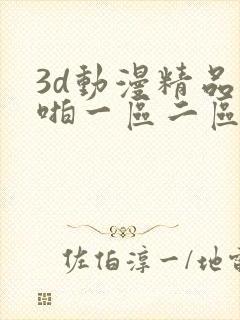 3d動漫精品
啪一區二區
佐伯淳一/地